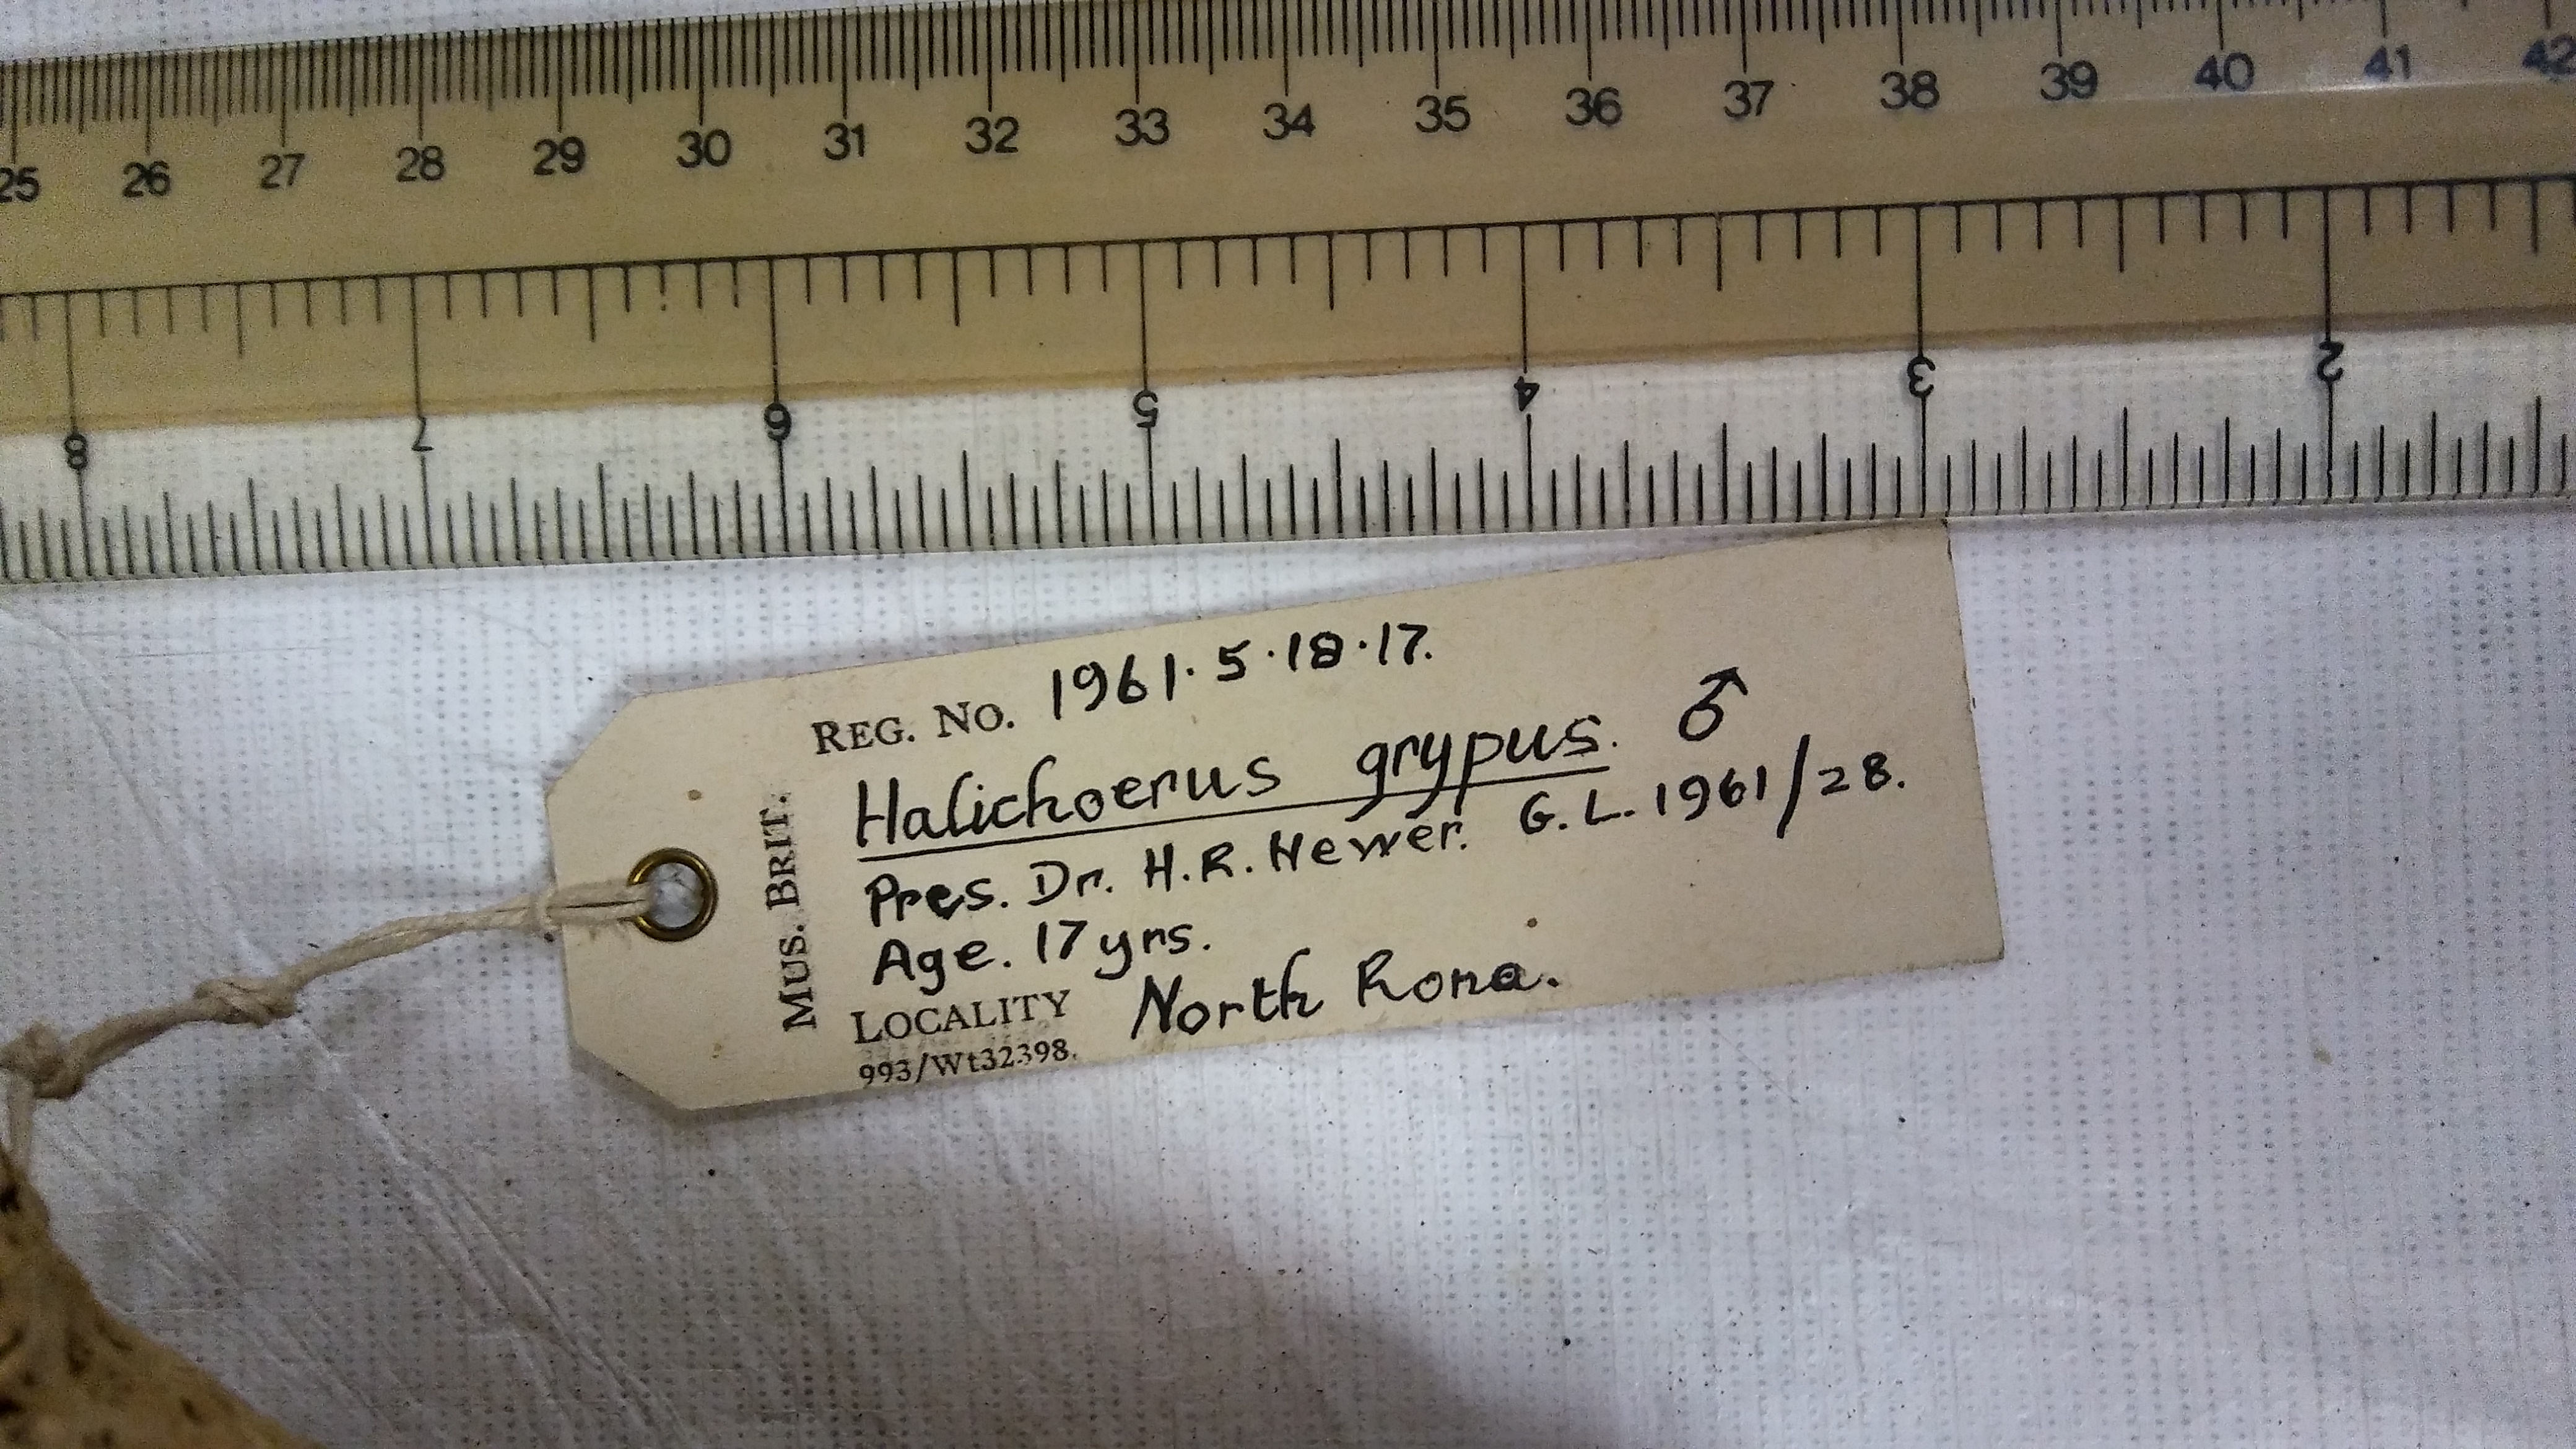 MUS. BRIT.
REG. NO. 1961.5.18.17.
Halichoerus grypus. ♂
Pres. Dr. H.R. Hewer. G.L. 1961/28.
Age. 17 yrs.
LOCALITY North Rona.
993/Wt32398.
8 7 6 5 4 3 2
25 26 27 28 29 30 31 32 33 34 35 36 37 38 39 40 41 42